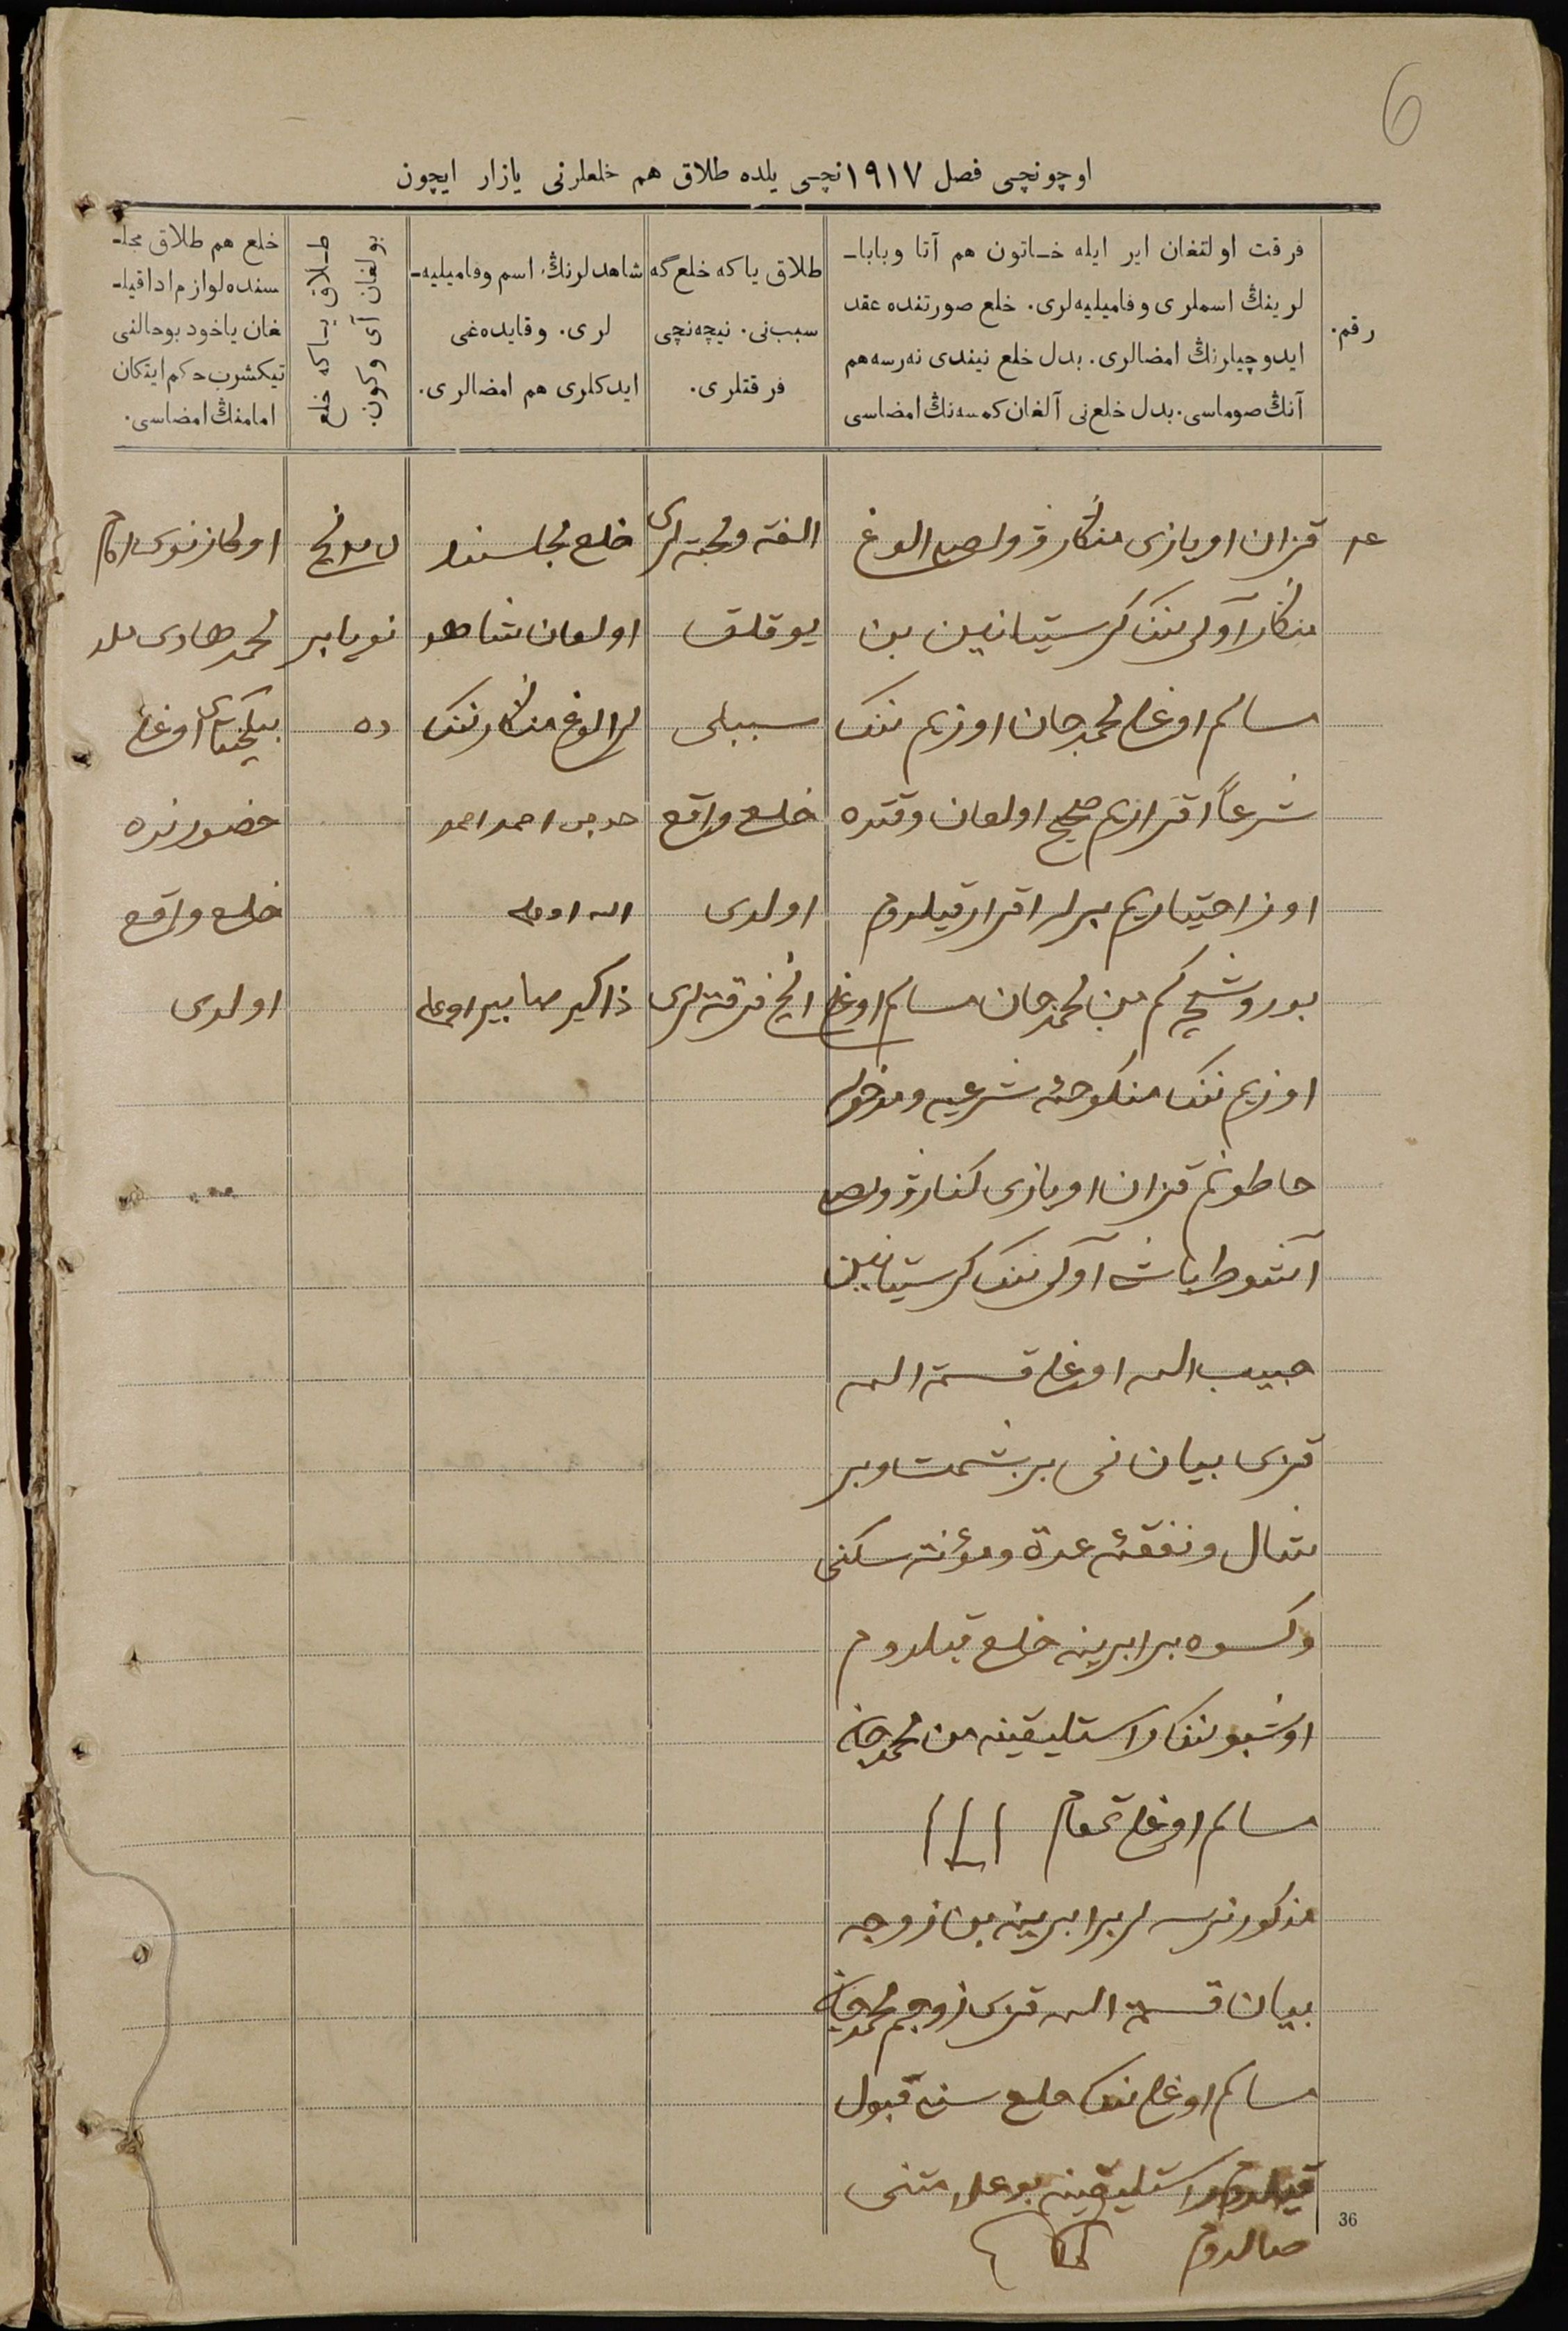 6
اوچونچی فصل ۱۹۱۷ نچی یلده طلاق هم خلعلرنی یازار ایچون
رقم.
فرقت اولنغان ایر ایله خاتون هم آتا و بابا-
لرینڭ اسملری و فامیلیه‌لری. خلع صورتنده عقد
ایدوچیلرنڭ امضالری. بدل خلع نیندی نه‌رسه هم
آنڭ صوماسی. بدل خلع‌نی آلغان کمسه‌نڭ امضاسی
طلاق یا که خلع گه
سبب‌نی. نیچه‌نچی
فرقتلری.
شاهدلرنڭ اسم و فامیلیه-
لری. و قایده‌غی
ایدکلری هم امضالری.
طلاق یا که خلع
بولغان آی و کون.
خلع هم طلاق مجلـ
سنده لوازم ادا قیلـ
غان یاخود بو حالنی
تیکشرب حکم ایتکان
امامنڭ امضاسی.
قزان اویازی منکار وولصی الوغ
منکار آولی ننک کرستیانین بن
سالم اوغلی محمدجان اوزیم ننک
شرعاً اقراریم صحیح اولغان وقتده
اوز اختیاریم برلر اقرار قیلدوم
بو روشچه کم من محمدجان سالم اوغلی
اوزیم ننک منکوحۀ شرعیه و مدخوله
خاطونم قزان اویازی کنار وولصی
باش آولی ننک کرستیانین
حبیب الله اوغلی قسمة الله
قزی بیان نی بر و بر
شال و نفقۀ عدة و مؤنة سکنی
و کسوه برابرینه خلع قیلدوم
اوشبو ننک راستلیقینه من محمدجان
سالم اوغلی تمغام
مذکور نرسه لر برابرینه من زوجه
بیان قسمة الله قزی زوجم محمدجان
سالم اوغلی ننک خلع سن قبول
قیلدوم راستلیقینه بو علامتنی
صالدوم
الفة و محبة لری
یوقلق
سببلی
خلع واقع
اولدی
انچی فرقتلری
خلع مجلسنده
اولغان شاهد
لر الوغ منکار ننک
احمد احمد
الله اوغلی
ذاکیر صابیر اوغلی
نویابر
ده
محمد هادی ملا
اوغلی
حضورنده
خلع واقع
اولدی
36